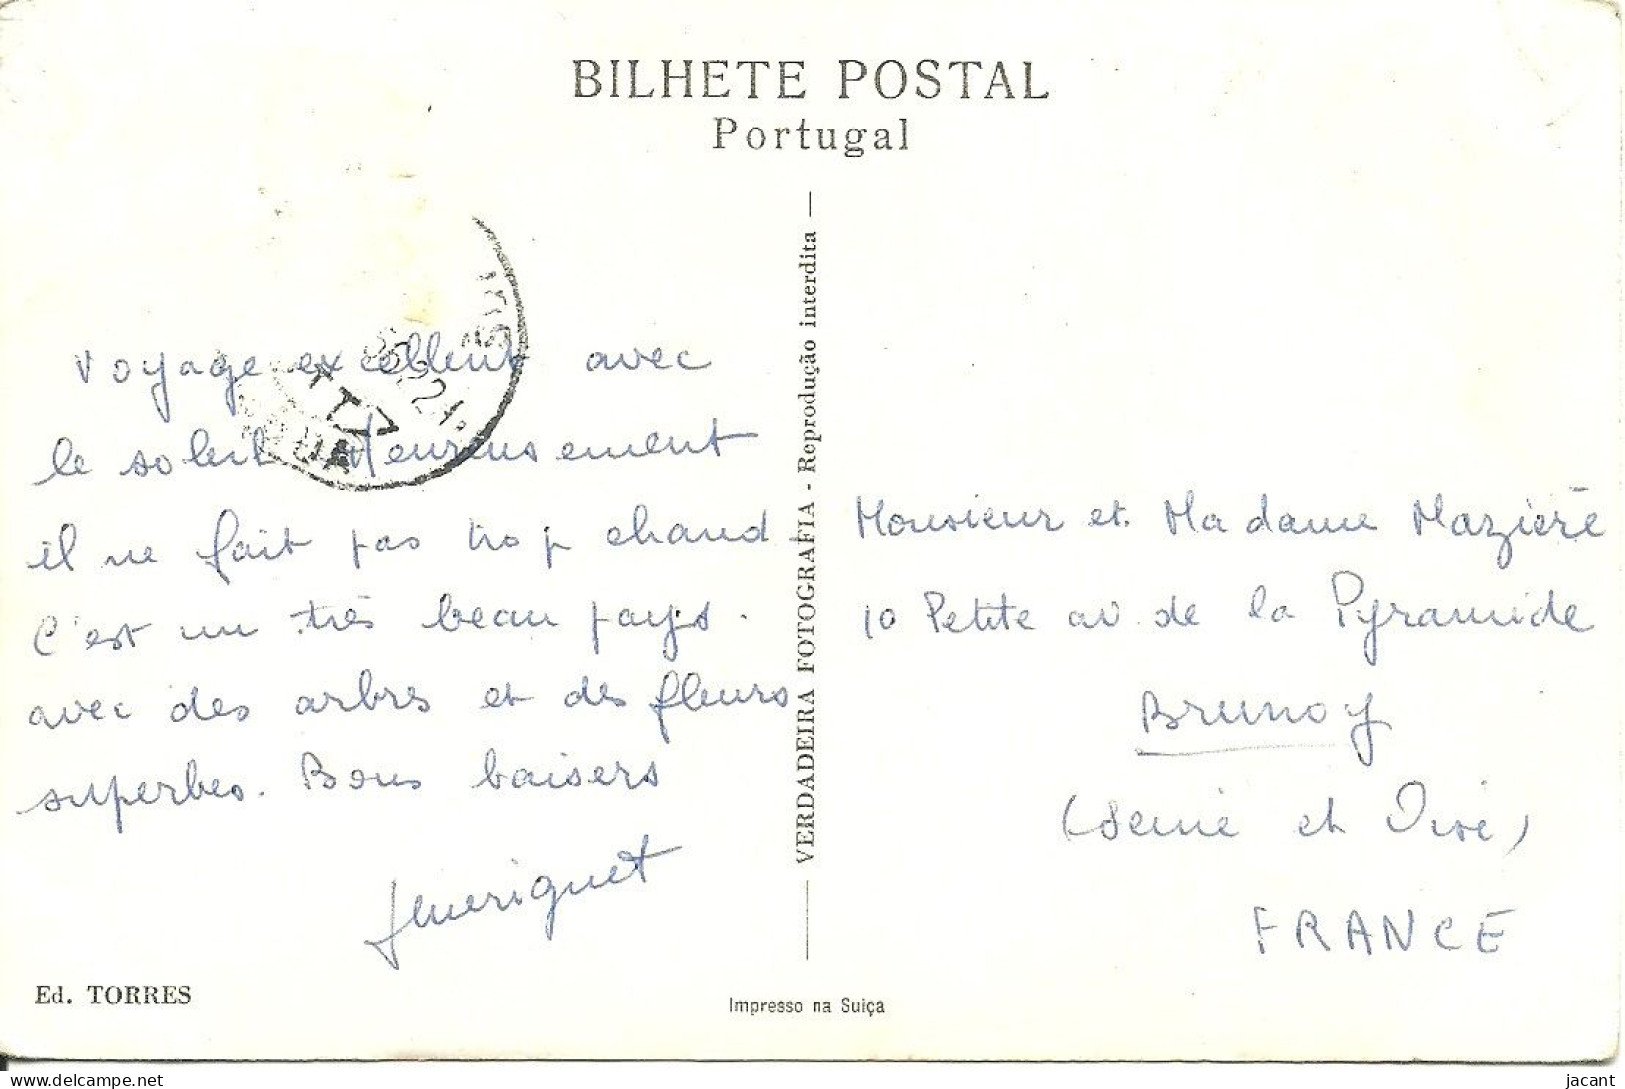 BILHETE POSTAL
Portugal
Voyage excellent avec
le soleil. Heureusement
il ne fait pas trop chaud.
C'est un très beau pays.
avec des arbres et des fleurs
superbes. Bons baisers
VERDADEIRA FOTOGRAFIA - Reprodução interdita
Monsieur et Madame Mazière
10 Petite av. de la Pyramide
Brunoy
(Seine et Oise)
FRANCE
Ed. TORRES
Impresso na Suíça
delcampe.net
jacant